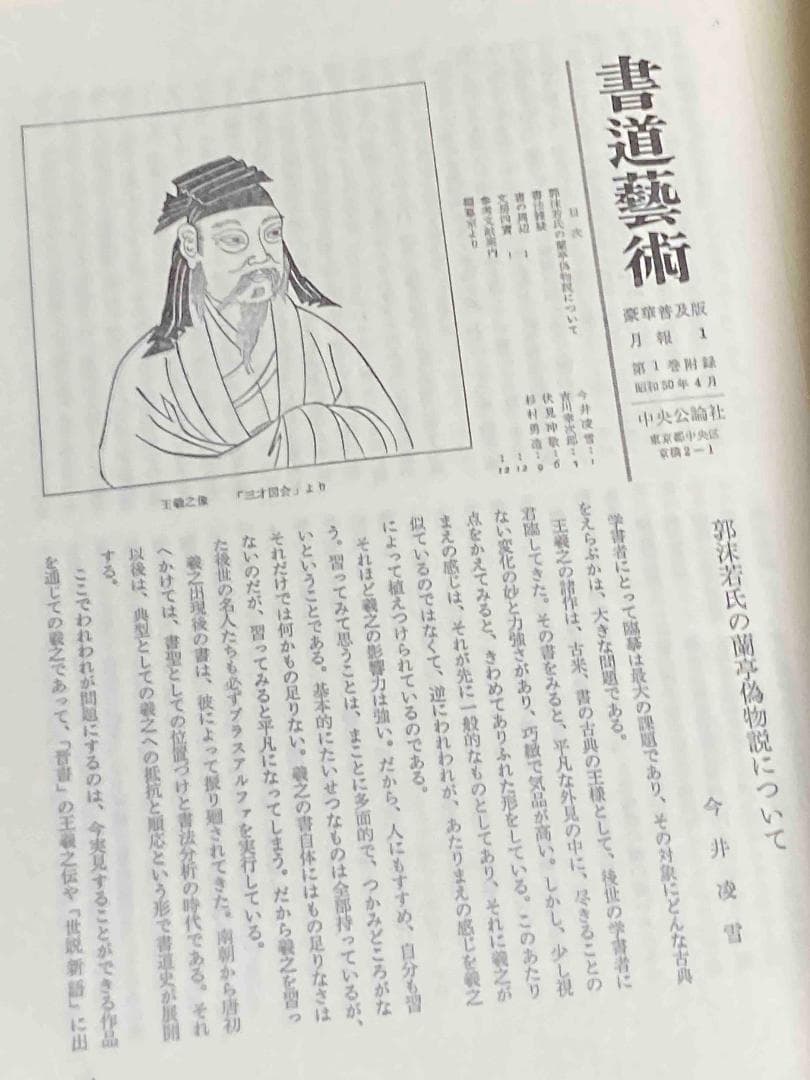 書道藝術
豪華普及版
月報 1
第1巻附録
昭和50年4月
中央公論社
東京都中央区
京橋2−1
目次
郭沫若氏の蘭亭偽物説について 今井凌雪…1
書法雑疑 吉川幸次郎…3
書の周辺 1 伏見冲敬…6
文房四寶 1 杉村勇造…9
参考文献案内 …12
編集室より …12
王羲之像 「三才図会」より
郭沫若氏の蘭亭偽物説について
今井凌雪
学書者にとって臨摹は最大の課題であり、その対象にどんな古典
をえらぶかは、大きな問題である。
王羲之の諸作は、古来、書の古典の王様として、後世の学書者に
君臨してきた。その書をみると、平凡な外見の中に、尽きることの
ない変化の妙と力強さがあり、巧緻で気品が高い。しかし、少し視
点をかえてみると、きわめてありふれた形をしている。このあたり
まえの感じは、それが先に一般的なものとしてあり、それに羲之が
似ているのではなくて、逆にわれわれが、あたりまえの感じを羲之
によって植えつけられているのである。
それほど羲之の影響力は強い。だから、人にもすすめ、自分も習
う。習ってみて思うことは、まことに多面的で、つかみどころがな
いということである。基本的にたいせつなものは全部持っているが、
それだけでは何かもの足りない。羲之の書自体にはもの足りなさは
ないのだが、習ってみると平凡になってしまう。だから羲之を習っ
た後世の名人たちも必ずプラスアルファを実行している。
羲之出現後の書は、彼によって振り廻されてきた。南朝から唐初
へかけては、書聖としての位置づけと書法分析の時代である。それ
以後は、典型としての羲之への抵抗と順応という形で書道史が展開
する。
ここでわれわれが問題にするのは、今実見することができる作品
を通じての羲之であって、「晋書」の王羲之伝や「世説新語」に出